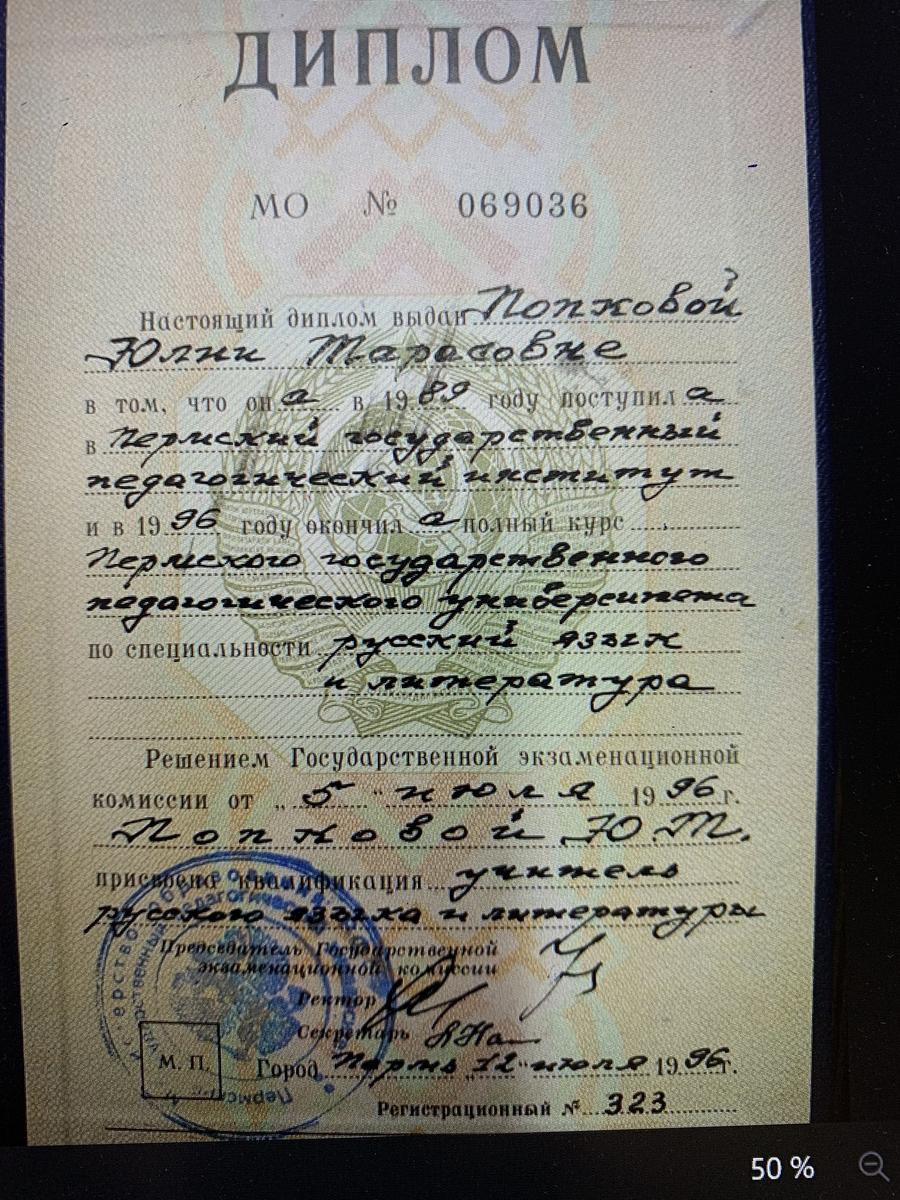 ДИПЛОМ
МО № 069036
Настоящий диплом выдан Попковой
Юлии Тарасовне
в том, что она в 1989 году поступила
в Пермский государственный
педагогический институт
и в 1996 году окончила полный курс
Пермского государственного
педагогического университета
по специальности русский язык
и литература
Решением Государственной экзаменационной
комиссии от „5" июля 1996 г.
Попковой Ю.Т.
присвоена квалификация учитель
русского языка и литературы
Председатель Государственной
экзаменационной комиссии
Ректор
Секретарь
М. П.
Город Пермь „12" июля 1996 г.
Регистрационный № 323
50 %